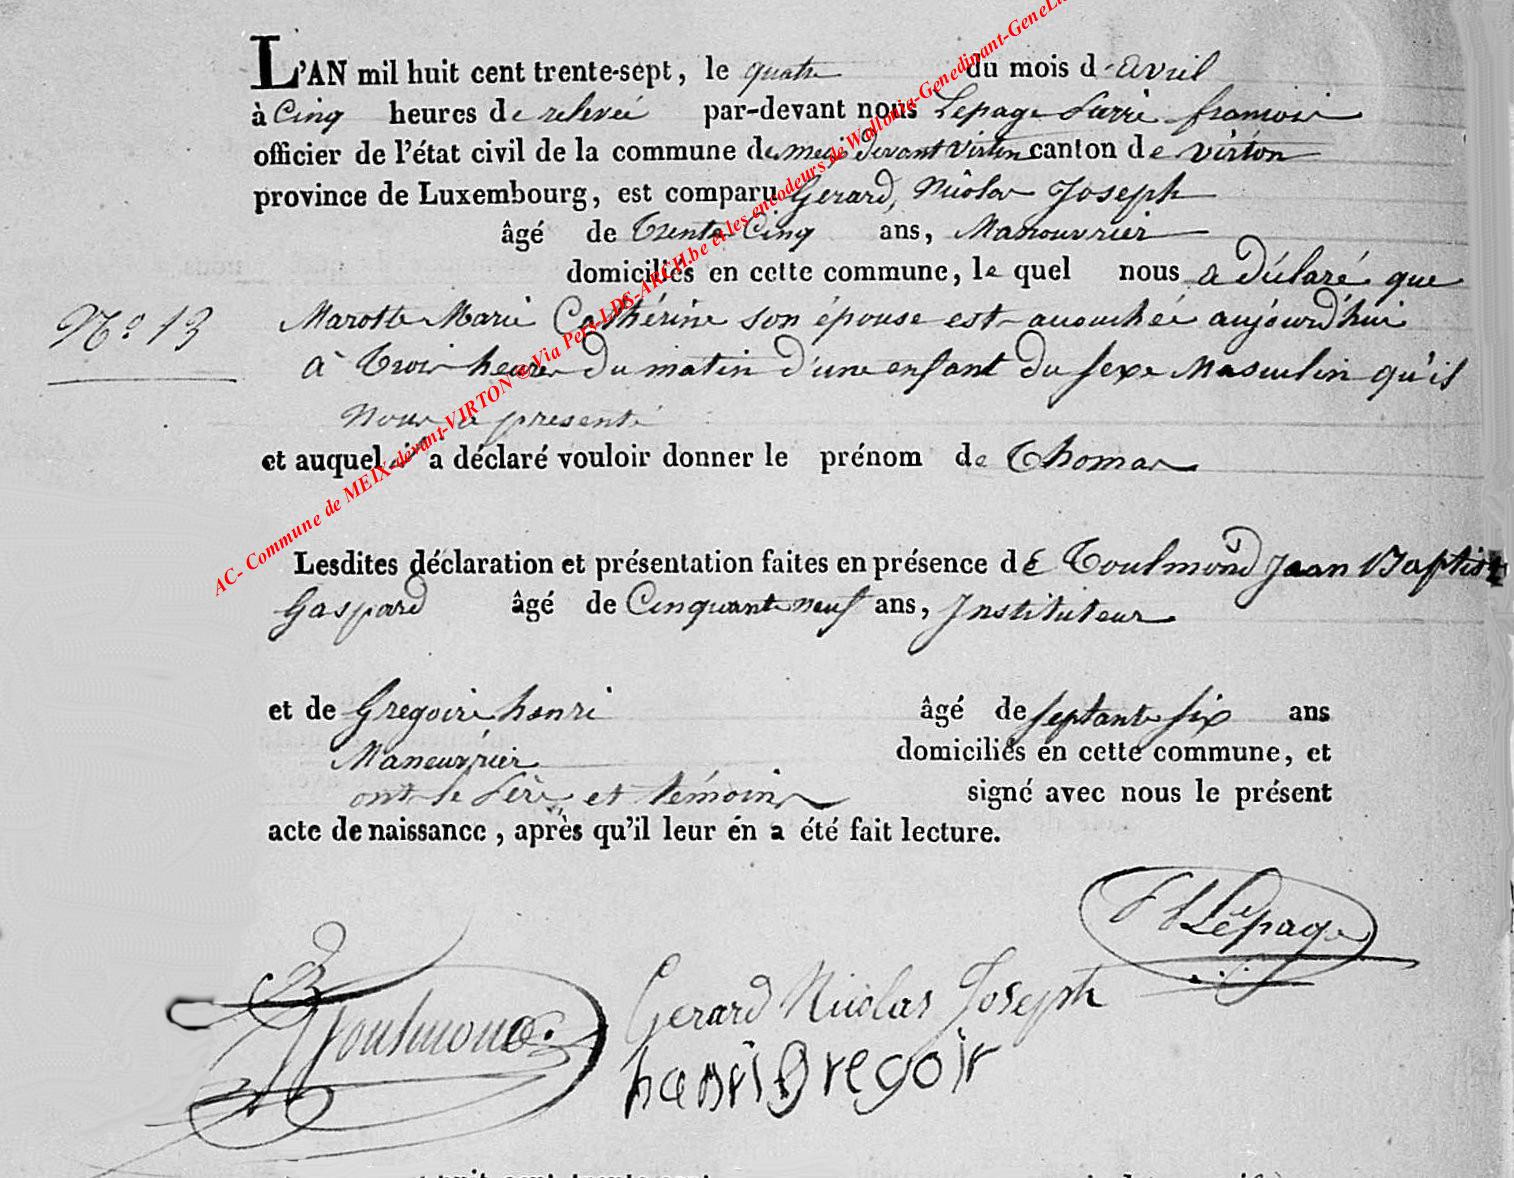 L'AN mil huit cent trente-sept, le quatre du mois d'avril
à Cinq heures de relevée par-devant nous Lepage Pierre françois
officier de l'état civil de la commune de meix devant Virton canton de virton
province de Luxembourg, est comparu Gerard, Nicolas Joseph
âgé de Trente Cinq ans, Manouvrier
domiciliés en cette commune, le quel nous a déclaré que
N.o 13
Marotte Marie Cathérine son épouse est accouchée aujourd'hui
à Trois heures du matin d'une enfant du sexe Masculin qu'il
nous a presenté
et auquel il a déclaré vouloir donner le prénom de Thomas
Lesdites déclaration et présentation faites en présence de Toulmond Jean Baptiste
Gaspard âgé de Cinquante neuf ans, Instituteur
et de Gregoire henri âgé de septante six ans
Maneuvrier domiciliés en cette commune, et
ont le Père et témoins signé avec nous le présent
acte de naissance, après qu'il leur en a été fait lecture.
Lepage
Gerard Nicolas Joseph
Toulmond
henri Gregoir
AC- Commune de MEIX-devant-VIRTON @ Via Pers-LDS-ARCH.be et les encodeurs de Wallonia-Genedinant-GeneLux